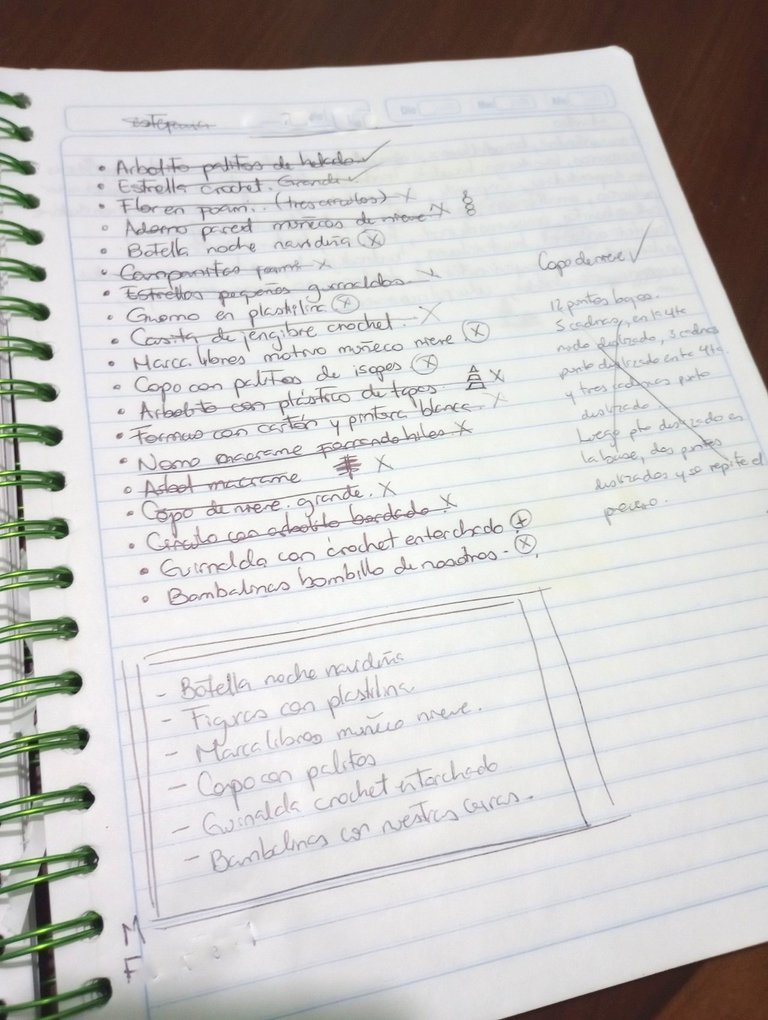 • Arbolito palitos de helado ✓
• Estrella crochet. Grande ✓
• Flor en foami.. (tres circulos) X
• Adorno pared muñecos de nieve X
• Botella noche navideña ⓧ
• Campanitas foami X
• Estrellas pequeñas guirnaldas. X
• en plastilina ⓧ
• Casita de jengibre crochet. X
• Marca libros motivo muñeco nieve ⓧ
• Copo con palitos de isopes ⓧ
• Arbolito con plástico de tapas X
• Formas con cartón y pintura blanca X
• Nomo macrame forrando hilos X
• Arbol macrame X
• Copo de nieve. grande. X
• Circulo con arbolito bordado X
• Guirnalda con crochet entorchado ⊕
• Bambalinas bombillo de nosotros. ⓧ
Copo de nieve ✓
12 puntos bajos.
5 cadenas, en la 4ta
deslizado, 3 cadenas
punto deslizado en la 4ta.
y tres cadenas punto
deslizado.
Luego pto deslizado en
la base, dos puntos
deslizados y se repite el
proceso.
- Botella noche navideña
- Figuras con plastilina
- Marca libros muñeco nieve.
- Copo con palitos
- Guirnalda crochet entorchado
- Bambalinas con nuestras caras.
M
F